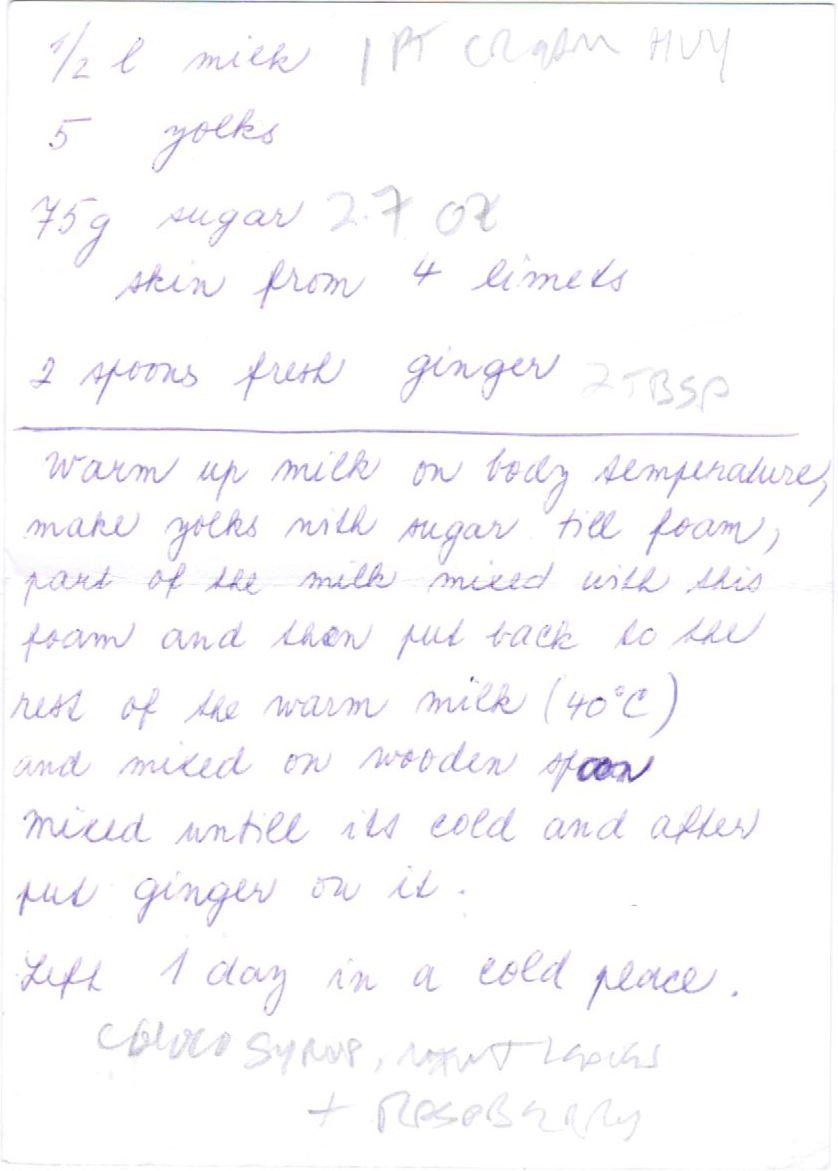 1/2 l milk 1 PT CREAM HVY
5 yolks
75g sugar 2.7 OZ
skin from 4 limets
2 spoons fresh ginger 2 TBSP
Warm up milk on body temperature,
make yolks with sugar till foam,
part of the milk mixed with this
foam and then put back to the
rest of the warm milk (40°C)
and mixed on wooden spoon
mixed untill its cold and after
put ginger on it.
Left 1 day in a cold place.
CHOCO SYRUP, MINT LEAVES
+ RASPBERRY